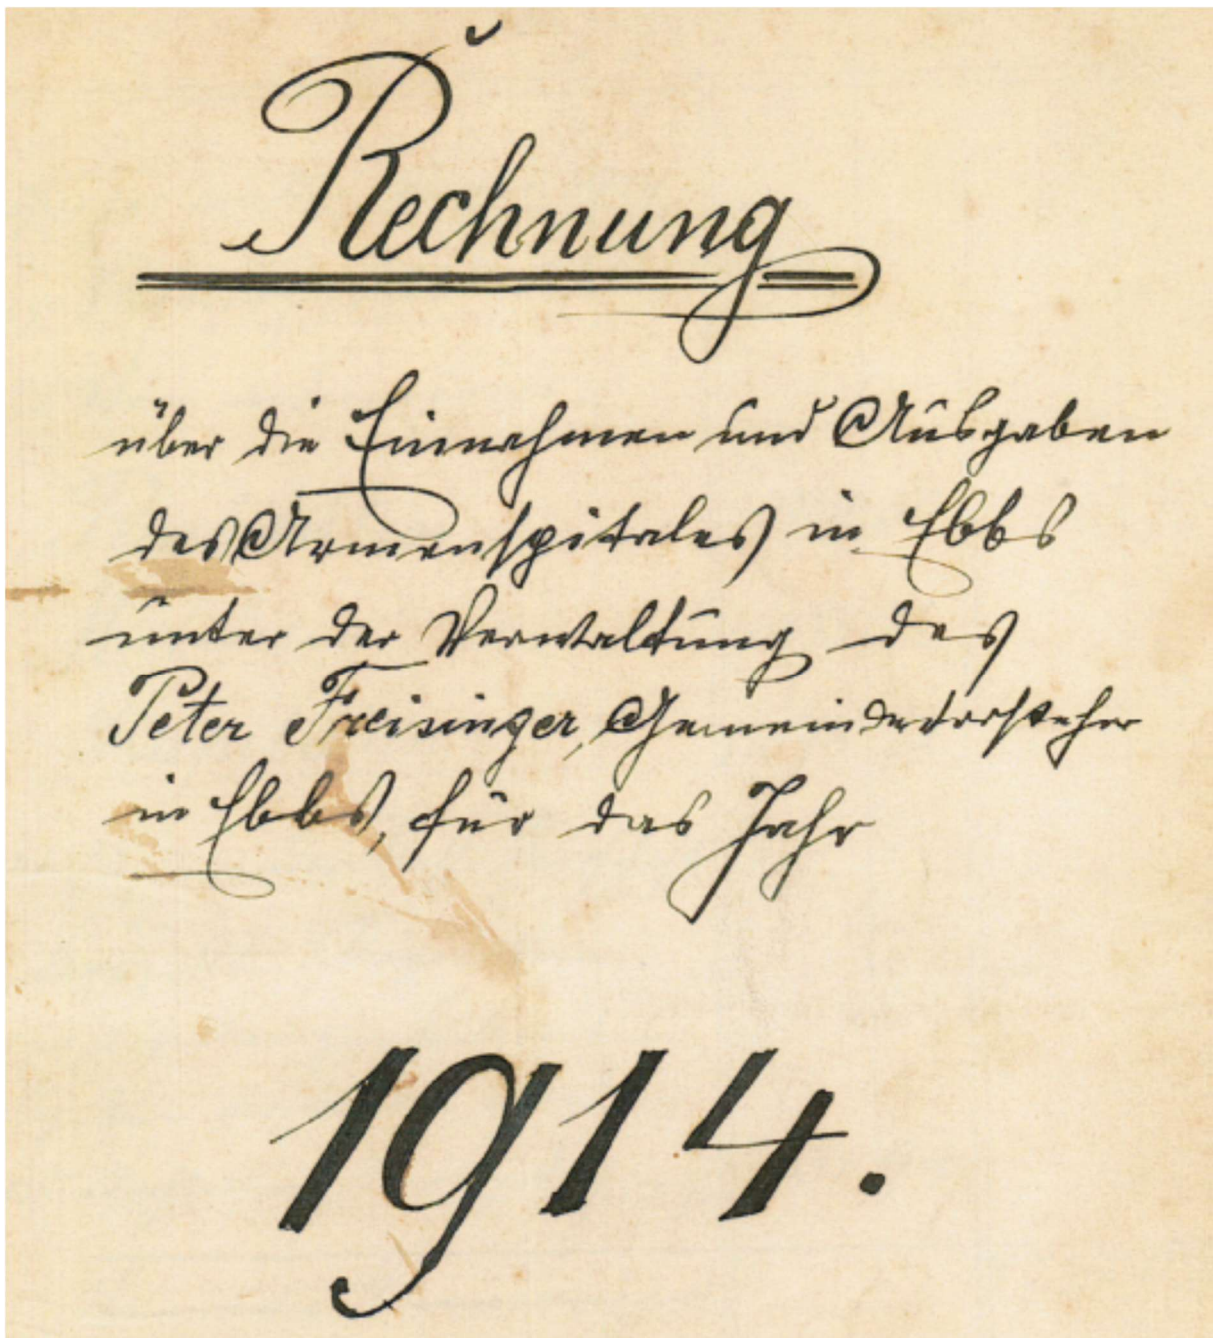 Rechnung
über die Einnahmen und Ausgaben
des Armenspitales in Ebbs
unter der Verwaltung des
Peter Freisinger, Gemeindevorsteher
in Ebbs, für das Jahr
1914.